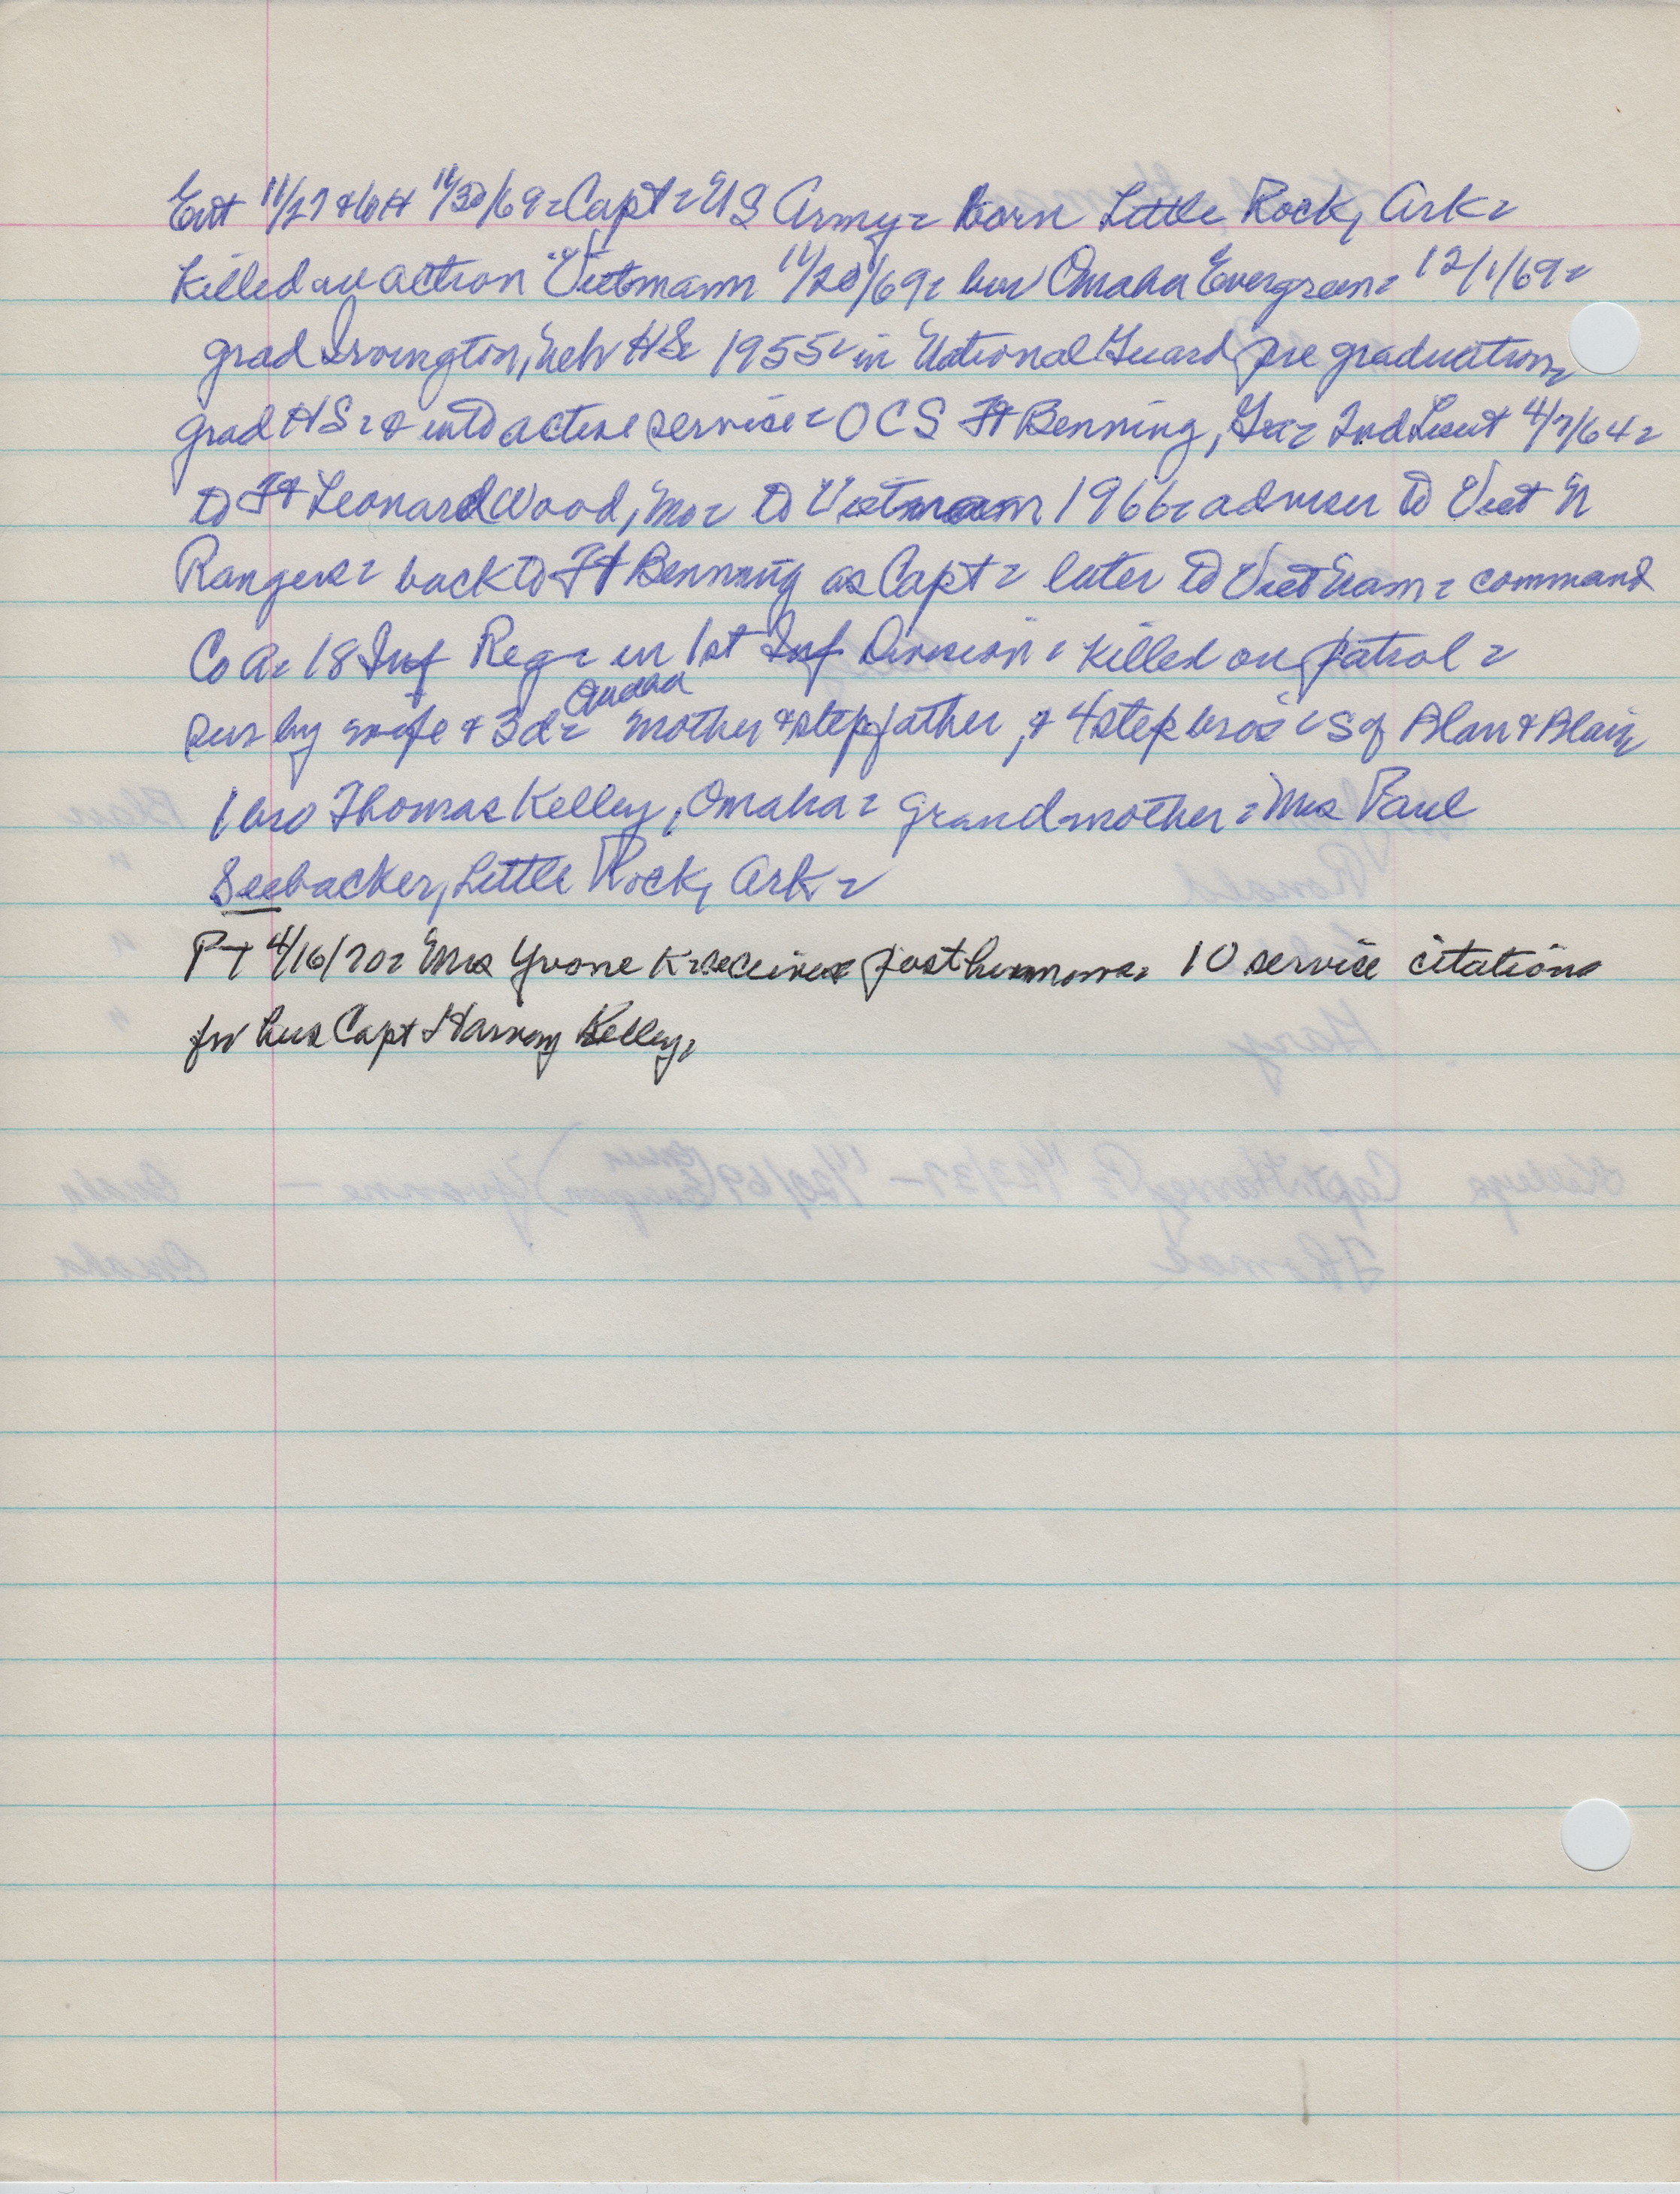 Ent 11/27 & WH 11/30/69 = Capt = US Army = born Little Rock, Ark =
Killed in action Vietmann 11/20/69 = bur Omaha Evergreen = 12/1/69 =
grad Irvington, Neb HS = 1955 = in National Guard pre graduation
grad HS = & into active service = OCS Ft Benning, Ga = 2nd Lieut 4/7/64 =
to Ft Leonard Wood, Mo = to Vietnam 1966 = adviser to Viet N
Rangers = back to Ft Benning as Capt = later to Viet Nam = command
Co A = 18 Inf Reg = in 1st Inf Division = killed on patrol =
sur by wife & 3d = mother & stepfather, & 4 step bros = S of Blair
1 bro Thomas Kelley, Omaha = grandmother = Mrs Paul
Seebacker, Little Rock, Ark =
PT 4/16/70 = Mrs Yvone K = receives posthumous = 10 service citations
for hus Capt Harvey Kelley =